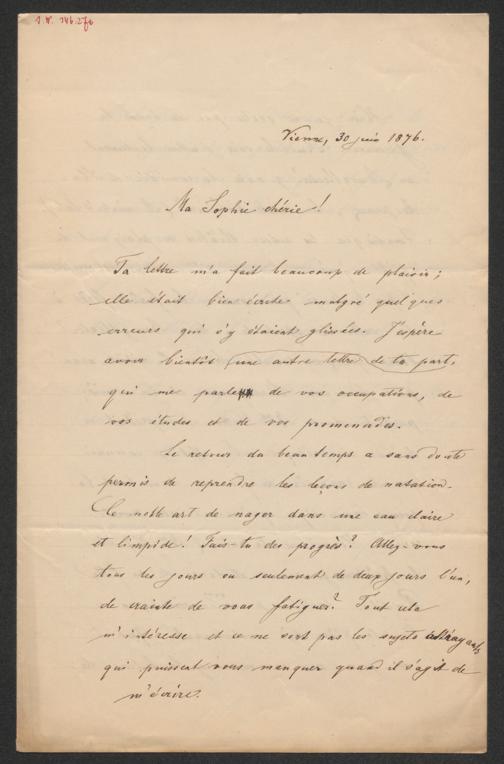 Vienne, 30 juin 1876.
Ma Sophie chérie !
Ta lettre m'a fait beaucoup de plaisir ;
elle était bien écrite malgré quelques
erreurs qui s'y étaient glissées. J'espère
avoir bientôt une autre lettre de ta part,
qui me parle de vos occupations, de
vos études et de vos promenades.
Le retour du beau temps a sans doute
permis de reprendre les leçons de natation.
Le noble art de nager dans une eau claire
et limpide ! Fais-tu des progrès ? Allez-vous
tous les jours ou seulement de deux jours l'un,
de crainte de vous fatiguer ? Tout cela
m'intéresse et ce ne sont pas les sujets attrayants
qui puissent vous manquer quand il s'agit de
m'écrire.